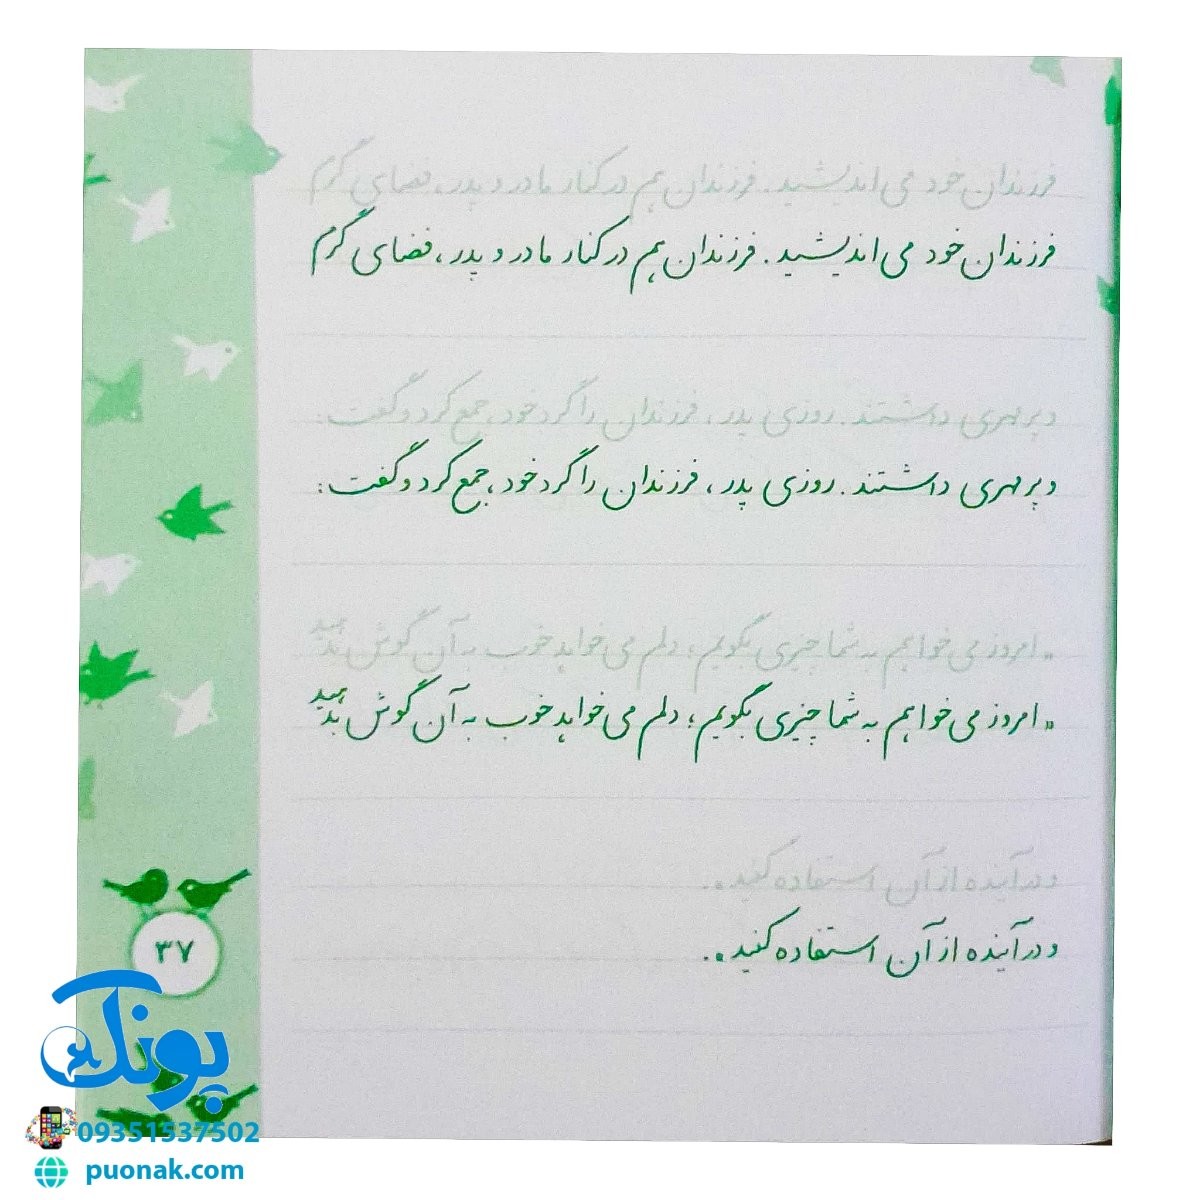 فرزندان خود می اندیشید. فرزندان هم در کنار مادر و پدر، فضای گرم
فرزندان خود می اندیشید. فرزندان هم در کنار مادر و پدر، فضای گرم
و پر مهری داشتند. روزی پدر، فرزندان را گرد خود، جمع کرد و گفت:
و پر مهری داشتند. روزی پدر، فرزندان را گرد خود، جمع کرد و گفت:
"امروز می خواهم به شما چیزی بگویم؛ دلم می خواهد خوب به آن گوش بدهید
"امروز می خواهم به شما چیزی بگویم؛ دلم می خواهد خوب به آن گوش بدهید
و در آینده از آن استفاده کنید".
و در آینده از آن استفاده کنید".
۳۷
پونک
09351537502
puonak.com